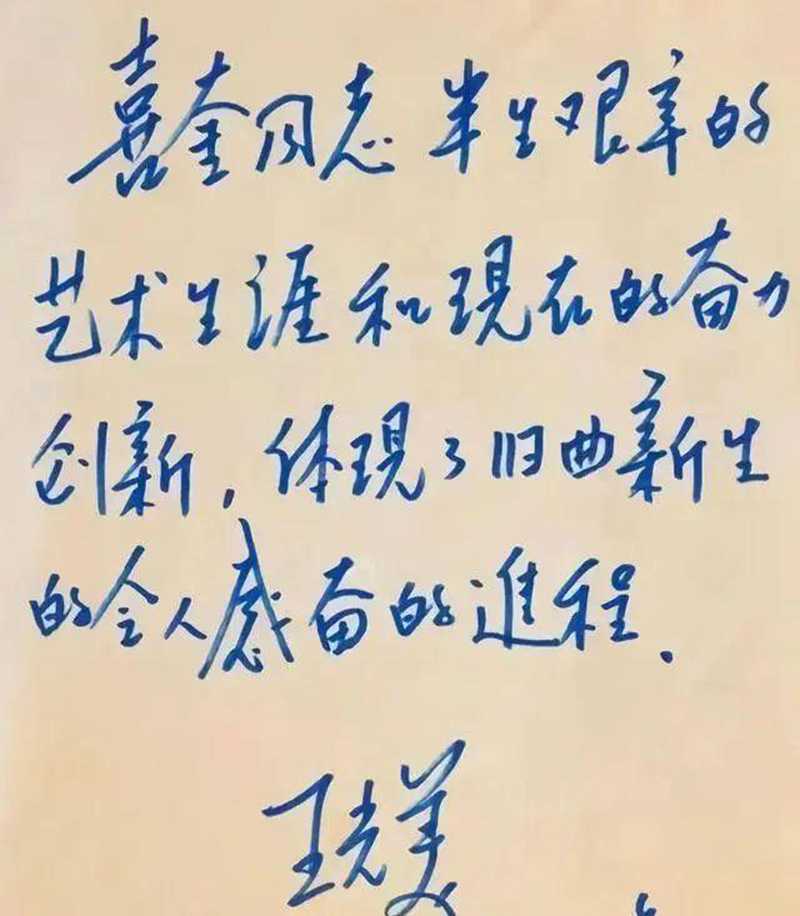 喜奎同志半生艰辛的
艺术生涯和現在的奋力
创新,体現了旧曲新生
的令人感奋的進程.
王光美